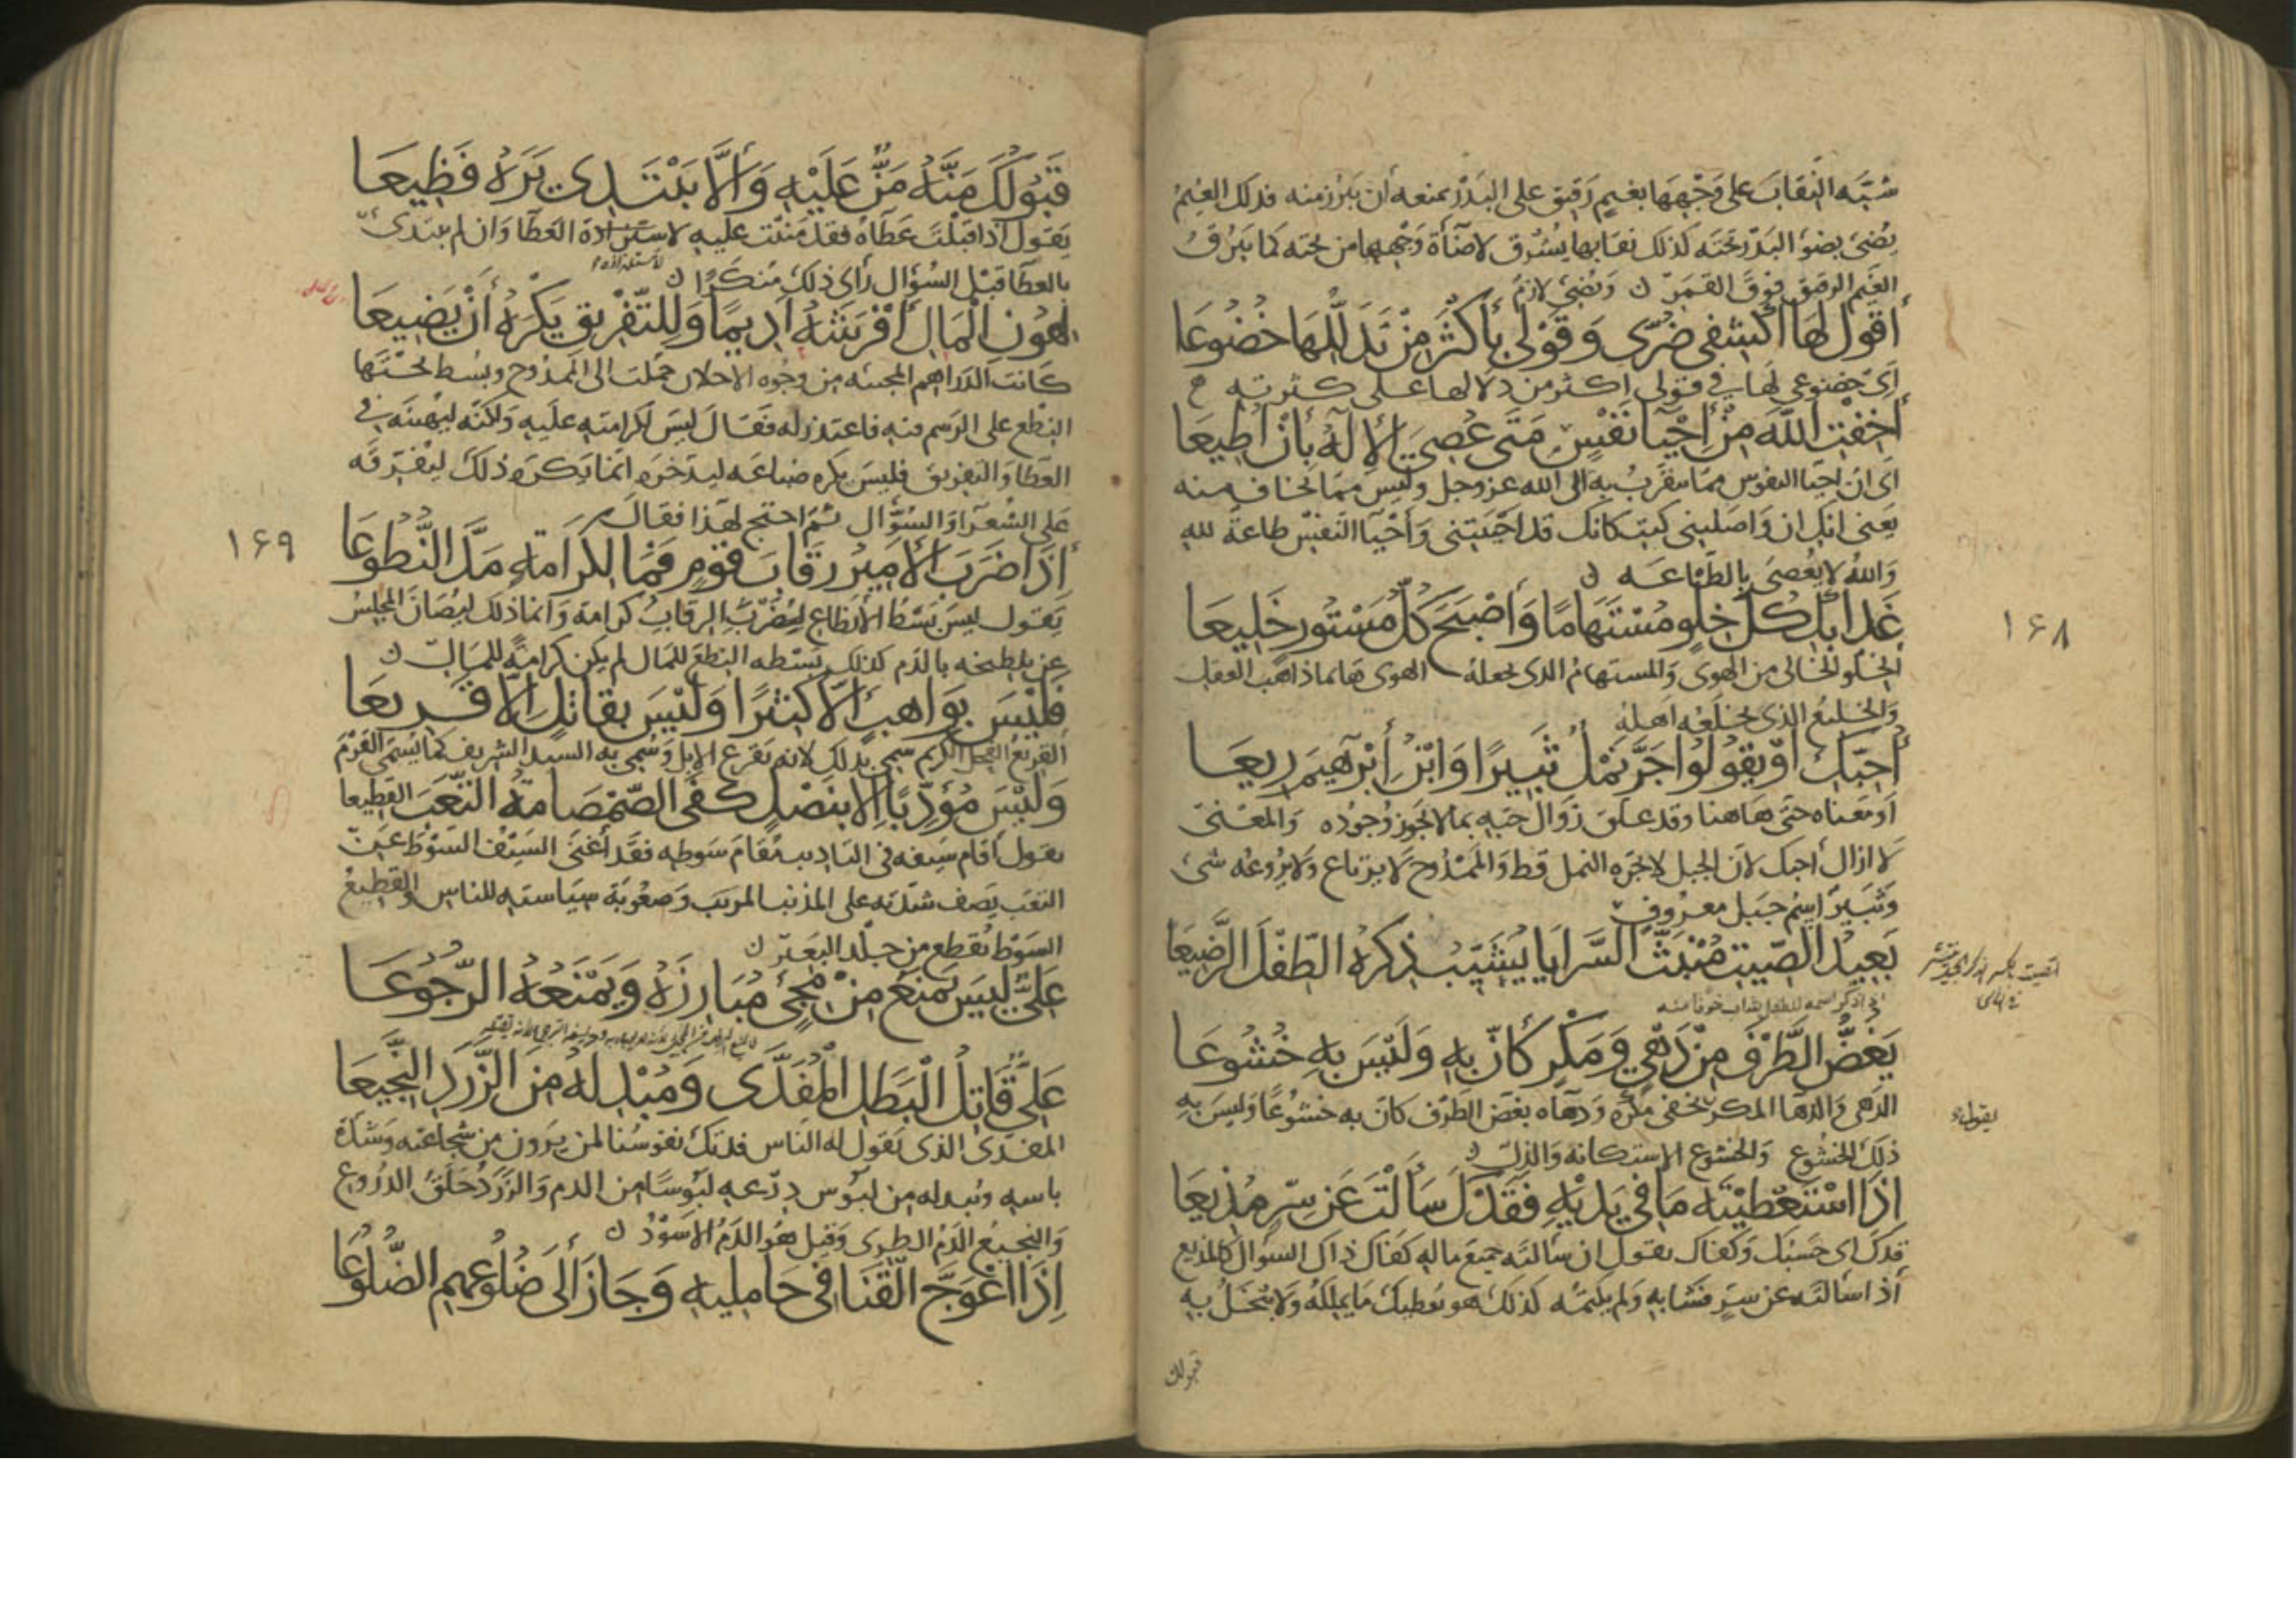 شبّه النقاب على وجهها بغيم رقيق على البدر يمنعه أن يبرز منه فذلك الغيم
يضيء بضوء البدر تحته كذلك نقابها يشرق لاضآة وجهها من تحته كما يبرق
الغيم الرقيق فوق القمر ن ويضيء لازم
أَقُولُ لَهَا اكْشِفِي ضُرِّي وَقَوْلِي بِأَكْثَرَ مِنْ تَدَلُّلِهَا خُضُوعَا
اي خضوعي لها في قولي اكثر من دلالها على كثرته
أَخِفْتِ اللَّهَ مِنْ إِحْيَاءِ نَفْسٍ مَتَى عُصِيَ الإِلَهُ بِأَنْ أُطِيعَا
اي ان احيا النفوس مما يتقرب به الى الله عز وجل وليس مما يخاف منه
يعني انك ان واصلتني كنت كانك قد احييتني وأحيآ النفس طاعة لله
والله لا يعصى بالطاعه ن
غَدَا بِكِ كُلُّ خِلْوٍ مُسْتَهَامًا وَأَصْبَحَ كُلُّ مَسْتُورٍ خَلِيعَا
الخلو الخالي من الهوى والمستهام الذي يجعله الهوى هائما ذاهب العقل
والخليع الذي يخلعه اهله
أُحِبُّكِ أَوْ يَقُولُوا جَرَّ نَمْلٌ ثَبِيرًا وَابْنُ إِبْرَهِيمَ رِيعَا
او معناه حتى هاهنا وقد علق زوال حبه بما لا يجوز وجوده والمعنى
لا ازال أحبك لان الجبل لا يجره النمل قط والممدوح لا يرتاع ولا يروعه شيء
وثبير اسم جبل معروف
بَعِيدُ الصِّيتِ مُنْبَثُّ السَّرَايَا يُشَيِّبُ ذِكْرُهُ الطِّفْلَ الرَّضِيعَا
اذا ذكر اسمه للطفل شاب خوفا منه
يَغُضُّ الطَّرْفَ مِنْ دَهْيٍ وَمَكْرٍ كَأَنَّ بِهِ وَلَيْسَ بِهِ خُشُوعَا
الدهي والدها المكر يخفي مكره ودهاه بغض الطرف كان به خشوعا وليس به
يقول
ذلك الخشوع والخشوع الاستكانه والذل ن
إِذَا اسْتَعْطَيْتَهُ مَا فِي يَدَيْهِ فَقَدْكَ سَأَلْتَ عَنْ سِرٍّ مُذِيعَا
قدك اي حسبك وكفاك يقول ان سألته جميع ماله كفاك ذاك السوال كالمذيع
اذا سالته عن سر فشا به ولم يكتمه كذلك هو يعطيك ما يملكه ولا يبخل به
قبولك
١۶٨
قَبُولُكَ مَنَّهُ مَنٌّ عَلَيْهِ وَإِلَّا يَبْتَدِي يَرَهُ فَظِيعَا
يقول اذا قبلت عطآه فقد مننت عليه العطا وان لم يبتدي
بالعطا قبل السؤال رأى ذلك منكرا ن
لِهُونِ الْمَالِ أَفْرَشَهُ أَدِيمًا وَلِلتَّفْرِيقِ يَكْرَهُ أَنْ يَضِيعَا
كانت الدراهم من وجوه حملت الى الممدوح وبسط تحتها
النطع على الرسم فيه فاعتذر له فقال ليس لكرامته عليه ولكنه ليهينه في
العطا والتفريق فليس يكره ضياعه ليدخره انما يكره ذلك ليفرقه
على الشعرآ والسؤال ثم احتج لهذا فقال
إِذَا ضَرَبَ الأَمِيرُ رِقَابَ قَوْمٍ فَمَا لِكَرَامَةٍ مَدَّ النُّطُوعَا
يقول ليس بسط الأنطاع لضرب الرقاب كرامة وانما ذلك ليصان المجلس
عن تلطيخه بالدم كذلك بسطه النطع للمال لم يكن كرامة للمال ن
فَلَيْسَ بِوَاهِبٍ إِلَّا كَثِيرًا وَلَيْسَ بِقَاتِلٍ إِلَّا قَرِيعَا
القريع الفحل الكريم سمي بذلك لانه يقرع الابل وسمي به السيد الشريف كما يسمى القرم
وَلَيْسَ مُؤَدِّبًا إِلَّا بِنَصْلٍ كَفَى الصَّمْصَامَةُ التَّعَبَ القَطِيعَا
يقول أقام سيفه في التاديب مقام سوطه فقد أغنى السيف السوط عن
التعب يصف شدته على المذنب المريب وصعوبة سياسته للناس والقطيع
السوط يقطع من جلد البعير ن
عَلِيٌّ لَيْسَ يَمْنَعُ مِنْ مَجِيءٍ مُبَارِزَهُ وَيَمْنَعُهُ الرُّجُوعَا
عَلِيٌّ قَاتِلُ الْبَطَلِ الْمُفَدَّى وَمُبْدِلُهُ مِنَ الزَّرَدِ النَّجِيعَا
المفدى الذي يقول له الناس فدتك نفوسنا لمن يرون من شجاعته وشدة
باسه ويبدله من لبوس درعه لبوسا من الدم والزرد حلق الدروع
والنجيع الدم الطري وقيل هو الدم الاسود ن
إِذَا اعْوَجَّ الْقَنَا فِي حَامِلِيهِ وَجَازَ إِلَى ضُلُوعِهِمِ الضُّلُوعَا
١۶٩